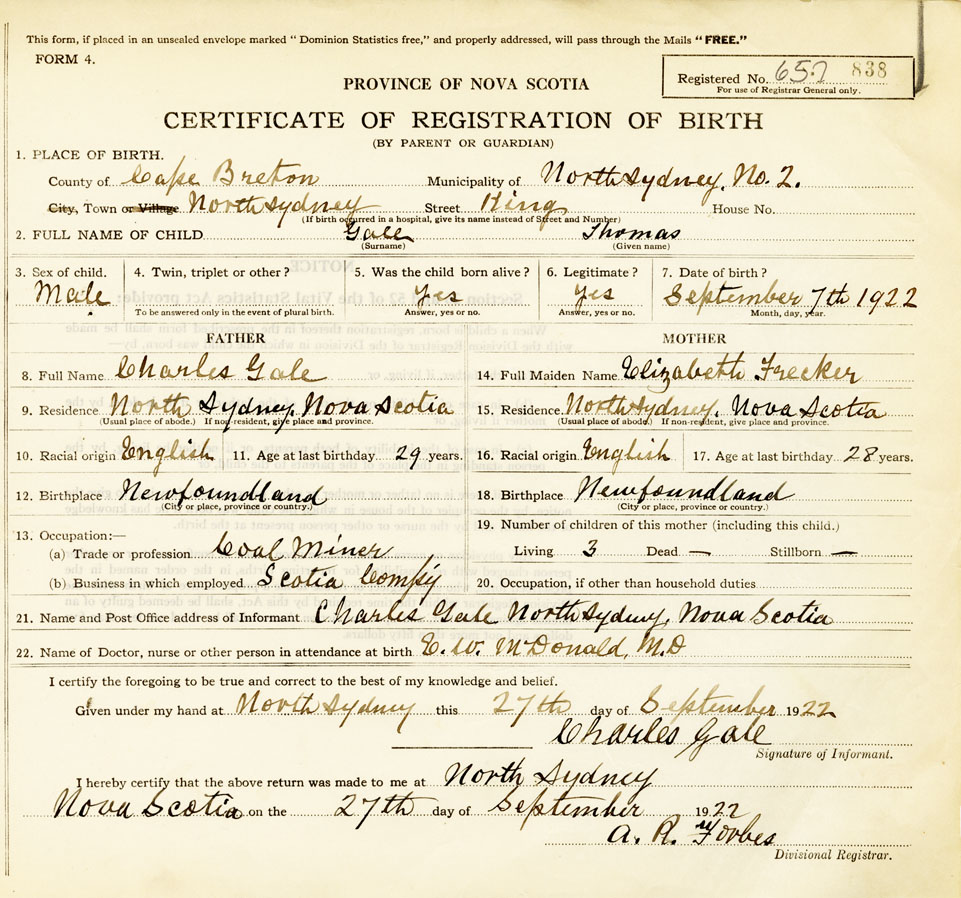 This form, if placed in an unsealed envelope marked “ Dominion Statistics free,” and properly addressed, will pass through the Mails “FREE.”
FORM 4.
Registered No. 657 838
For use of Registrar General only.
PROVINCE OF NOVA SCOTIA
CERTIFICATE OF REGISTRATION OF BIRTH
(BY PARENT OR GUARDIAN)
1. PLACE OF BIRTH.
County of Cape Breton Municipality of North Sydney, No. 2.
City, Town or Village North Sydney Street King House No.
(If birth occurred in a hospital, give its name instead of Street and Number)
2. FULL NAME OF CHILD Gale Thomas
(Surname) (Given name)
3. Sex of child. 4. Twin, triplet or other? 5. Was the child born alive? 6. Legitimate? 7. Date of birth?
Male Yes Yes September 7th 1922
To be answered only in the event of plural birth. Answer, yes or no. Answer, yes or no. Month, day, year.
FATHER MOTHER
8. Full Name Charles Gale 14. Full Maiden Name Elizabeth Frecker
9. Residence North Sydney, Nova Scotia 15. Residence North Sydney, Nova Scotia
(Usual place of abode.) If non-resident, give place and province. (Usual place of abode.) If non-resident, give place and province.
10. Racial origin English 11. Age at last birthday 29 years. 16. Racial origin English 17. Age at last birthday 28 years.
12. Birthplace Newfoundland 18. Birthplace Newfoundland
(City or place, province or country.) (City or place, province or country.)
13. Occupation:— 19. Number of children of this mother (including this child.)
(a) Trade or profession Coal Miner Living 3 Dead — Stillborn —
(b) Business in which employed Scotia Comp'y 20. Occupation, if other than household duties
21. Name and Post Office address of Informant Charles Gale North Sydney, Nova Scotia
22. Name of Doctor, nurse or other person in attendance at birth E. W. McDonald, M.D
I certify the foregoing to be true and correct to the best of my knowledge and belief.
Given under my hand at North Sydney this 27th day of September 1922
Charles Gale
Signature of Informant.
I hereby certify that the above return was made to me at North Sydney
Nova Scotia on the 27th day of September 1922
A. R. Forbes
Divisional Registrar.